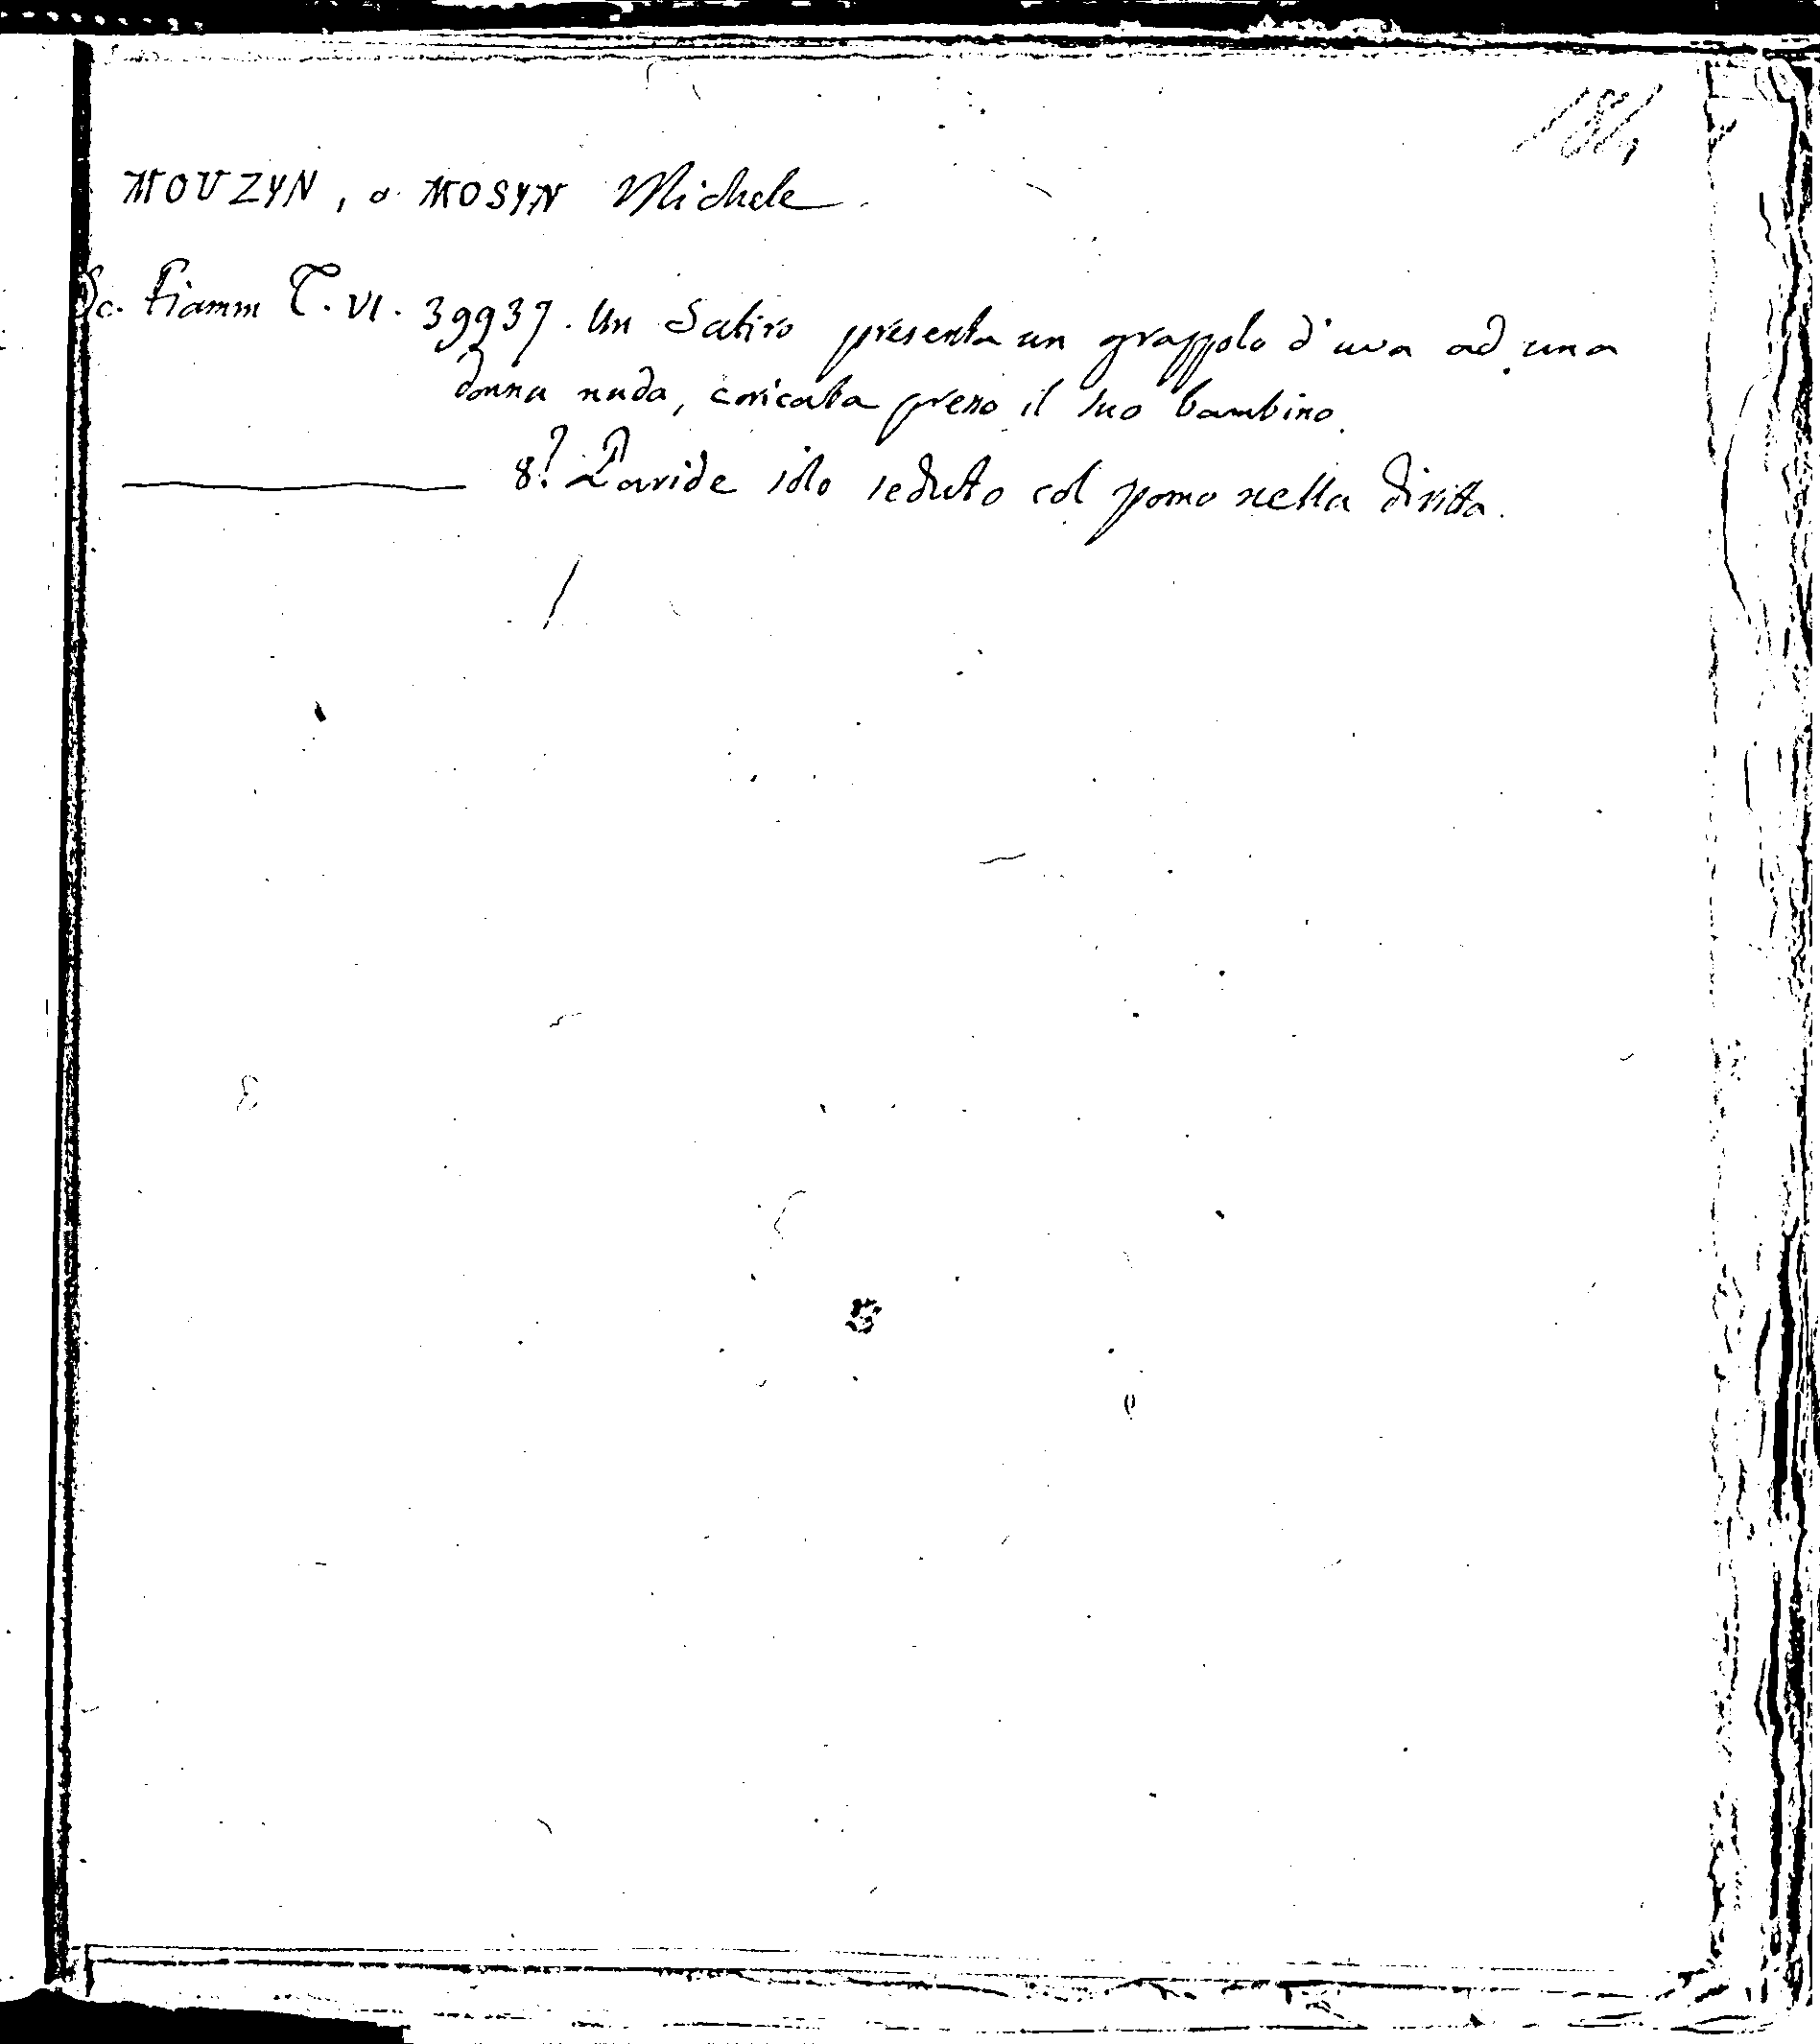 184
MOUZYN, o MOSYN Michele
Sc. Fiamm T. VI. 39937. Un Satiro presenta un grappolo d'uva ad una
donna nuda, coricata presso il suo bambino.
8. Paride solo seduto col pomo nella diritta.